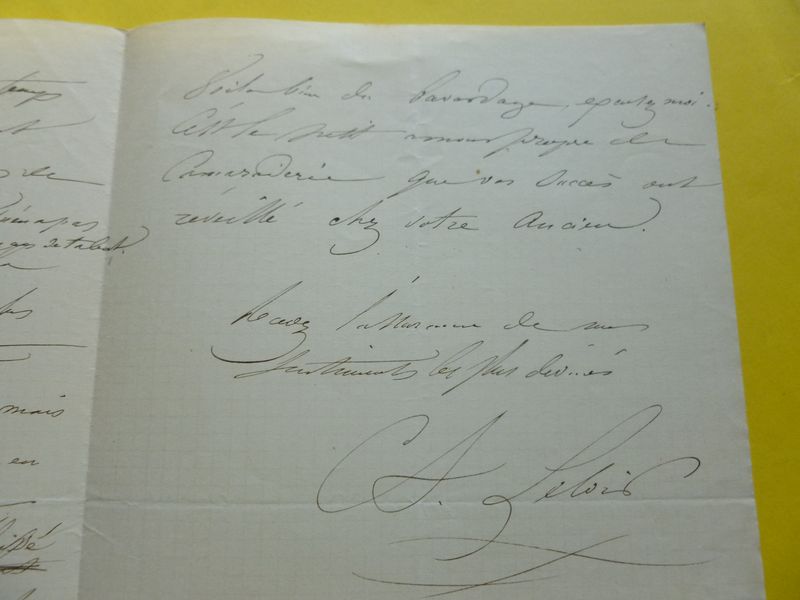 temps
de
pas
de talent.
mais
en
Voilà bien du bavardage, excusez moi.
C'est le petit amour propre de
Camaraderie que vos succès ont
réveillé chez votre Ancien.
Recevez l'assurance de mes
sentiments les plus dévoués
Lelois